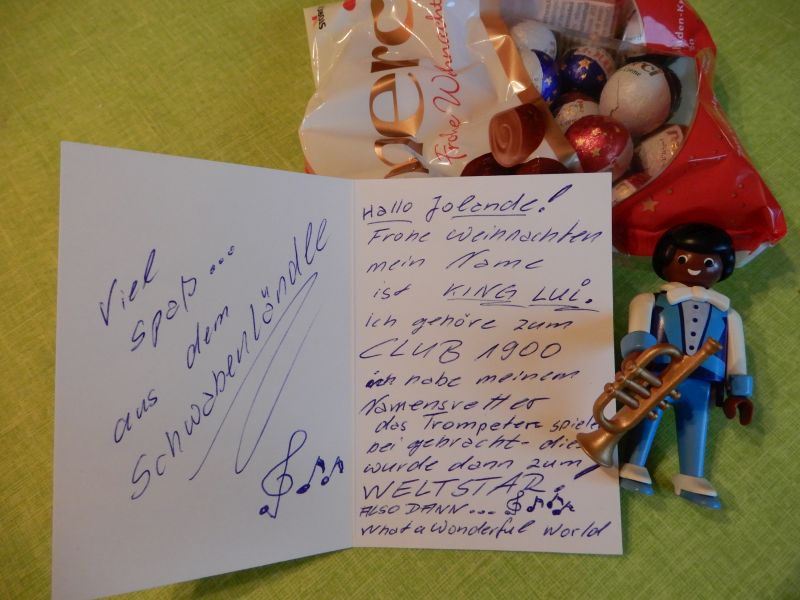 merci
Frohe Weihnacht
Viel
Spaß...
aus dem
Schwabenländle
Hallo Jolande!
Frohe Weihnachten
mein Name
ist KING LUi.
ich gehöre zum
CLUB 1900
ich habe meinem
Namensvetter
das Trompeten spiele
bei gebracht- die
wurde dann zum
WELTSTAR.
ALSO DANN...
What a Wonderful World